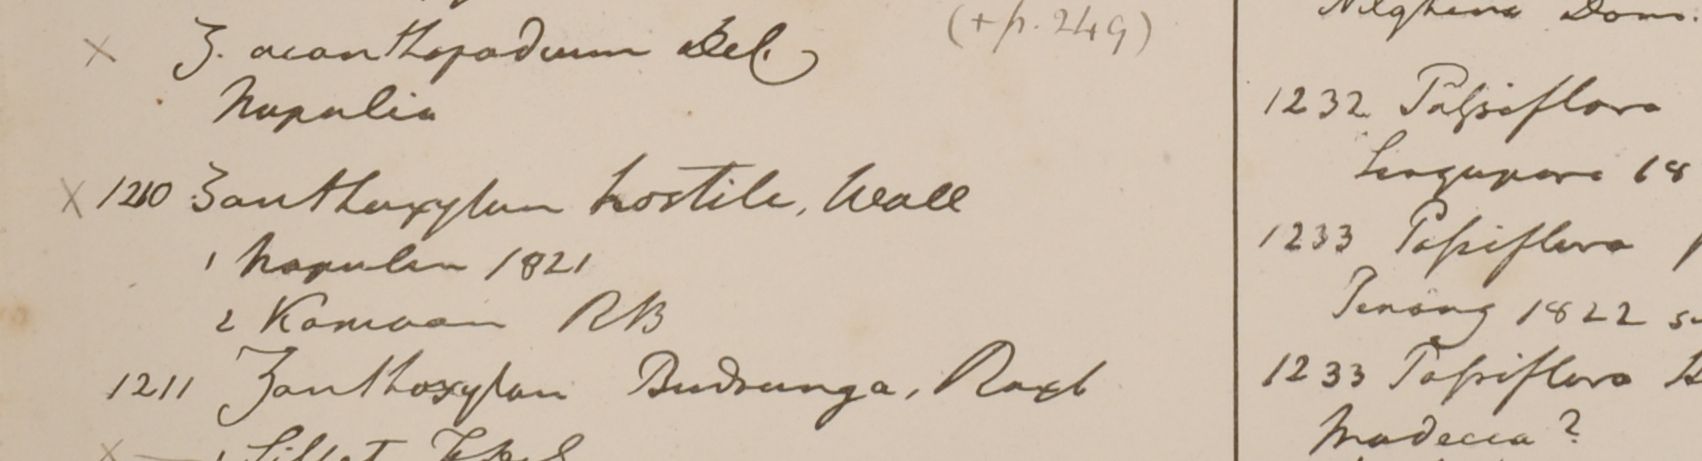 × Z. acanthopodium Del. (+p. 249)
Napalia
× 1210 Zanthoxylon hostile, Wall
1 Napalia 1821
2 Kamaon RB
1211 Zanthoxylon Budrunga, Roxb
×
Dom.
1232 Passiflora
Singapore 18
1233 Passiflora
Penang 1822
1233 Passiflora
Modecca ?